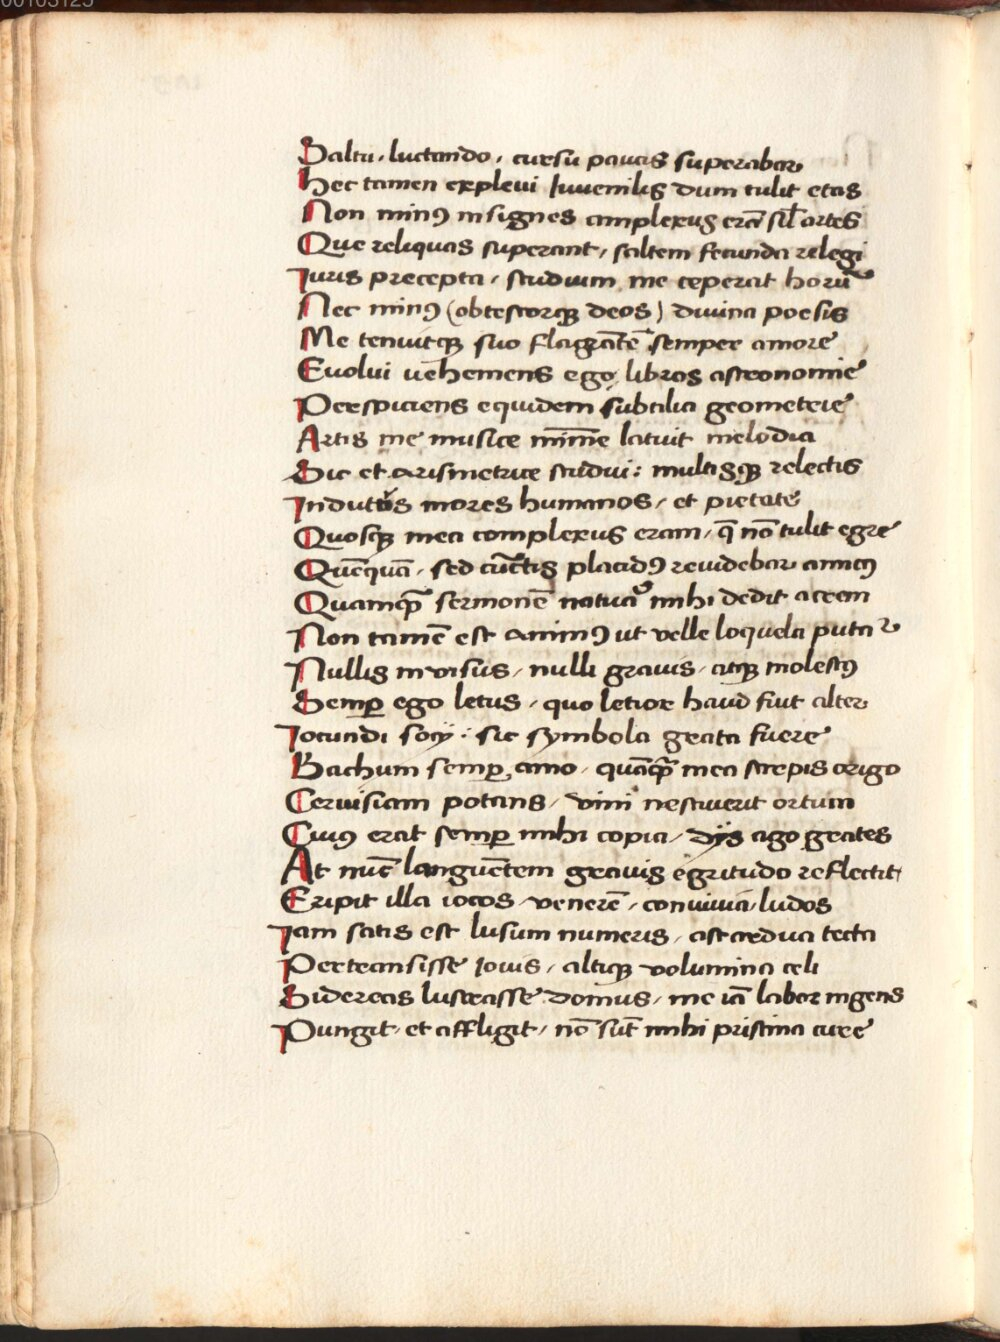 00103125
Saltu, luctando, cursu paucis superabar
Hec tamen explevi Iuvenilis dum tulit etas
Non minꝰ insignes amplexus erā sil̄ artes
Que reliquas superant, saltem fecunda relegi
Iuris precepta, studium me ceperat horū
Nec minꝰ (obtestorqꝫ deos) divina poesis
Me tenuitqꝫ suo flagrātē semper amore
Evolui vehemens ego libros astronomie
Perspiciens equidem subtilia geometrie
Artis me musice mīme latuit melodia
Sic et arismetrice studui: multisqꝫ relectis
Indutus mores humanos, et pietate
Quosqꝫ mea complexus eram, q̄ nō tulit egre
Quēquā, sed cūctis placidꝰ revidebar amicꝰ
Quamqꝫ̄ sermonē natura mihi dedit acrem
Non tamē est animꝰ ut velle loquela putar
Nullis invisus, nulli gravis, atqꝫ molestꝰ
Semꝑ ego letus, quo letior haud fiut alter
Iocundi socij: sic symbola grata fuere
Bachum semꝑ amo, quāqꝫ̄ mea strepis origo
Cervisiam potans, vini nesciverit ortum
Cuiꝰ erat semꝑ mihi copia, dijs ago grates
At nūc languētem gravis egritudo reflectit,
Eripit illa iocos, venerē, convivia, ludos
Iam satis est lusum numeris, ast ardua tecta
Pertransisse Iovis, altiqꝫ volumina celi
Sidereas lustrasse domus, me iā labor ingens
Pungit, et affligit, nō sūt mihi pristina cure